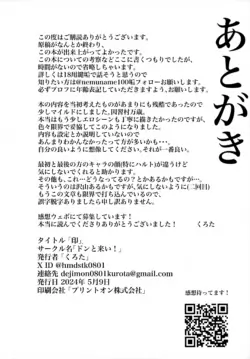 あとがき
この度はご購読ありがとうございます。
原稿がなんとか終わり、
この本が出来上がってよかったです。
この本についての考察などここに書くつもりでしたが、
時間がないので省略しちゃいます。
詳しくは18用鍵垢で話そうと思うので
知りたい方は@nemuname100垢フォローお願いします。
必ずプロフに年齢表記していただきますようお願いします。
本の内容を当初考えたものがあまりにも残酷であったため
少しマイルドにしました。因習村万歳。
本当はもう少しエロシーンも丁寧に描きたかったのですが、
色々限界でできず描写してませんでした。
内容も設定とか説明していないので、
あんまりわかんなかった方もいるかと思いますが…
自分の良いように想像してください。それが一番良い。
最初と最後の方のキャラの顔(特にハルト)が違うけど
気にしないでくれると助かります。
その他も、これ…どうなってるの?とかあるかもですが…
そういうのは沢山あるかもですが気にしないように(二回目)
もうこの文章も限界で打ち込んでいるので、
誤字脱字ありましたら申し訳ないです。
感想ウェボにて募集しています!
本当に読んでくださりありがとうございました。 くろた
感想待ってます!
タイトル「印」
サークル名「ドンと来い!」
発行者「くろた」
X ID @hmdstk0801
連絡先 dejimon0801kurota@gmail.com
発行日 2024年 5月9日
印刷会社「プリントオン株式会社」